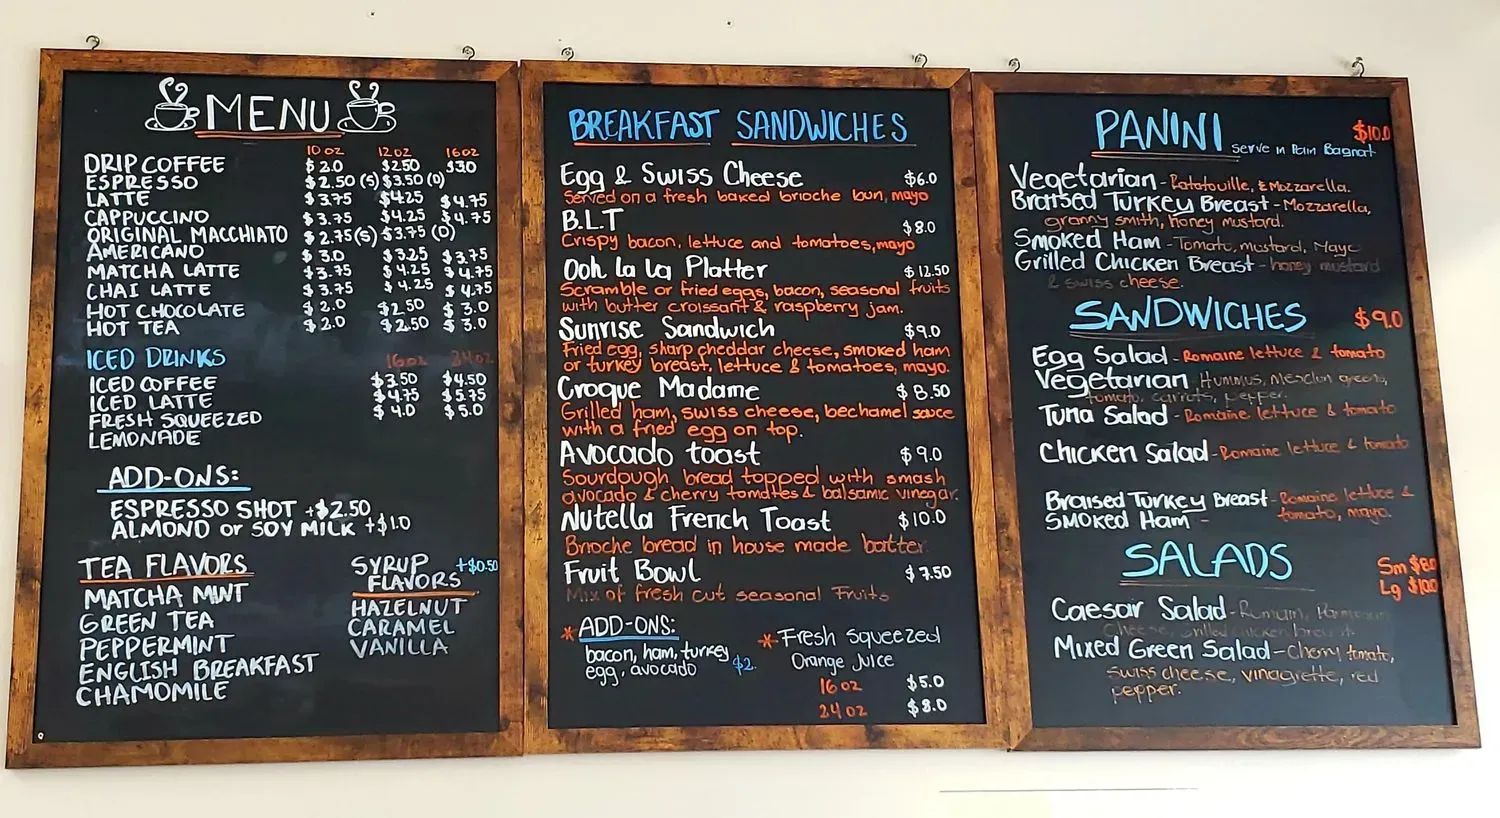 MENU
10 oz 12 oz 16 oz
DRIP COFFEE $2.0 $2.50 $3.0
ESPRESSO $2.50 (S) $3.50 (D)
LATTE $3.75 $4.25 $4.75
CAPPUCCINO $3.75 $4.25 $4.75
ORIGINAL MACCHIATO $2.75(S) $3.75 (D)
AMERICANO $3.0 $3.25 $3.75
MATCHA LATTE $3.75 $4.25 $4.75
CHAI LATTE $3.75 $4.25 $4.75
HOT CHOCOLATE $2.0 $2.50 $3.0
HOT TEA $2.0 $2.50 $3.0
ICED DRINKS 16 oz 24 oz
ICED COFFEE $3.50 $4.50
ICED LATTE $4.75 $5.75
FRESH SQUEEZED $4.0 $5.0
LEMONADE
ADD-ONS:
ESPRESSO SHOT +$2.50
ALMOND or SOY MILK +$1.0
TEA FLAVORS
MATCHA MINT
GREEN TEA
PEPPERMINT
ENGLISH BREAKFAST
CHAMOMILE
SYRUP +$0.50
FLAVORS
HAZELNUT
CARAMEL
VANILLA
BREAKFAST SANDWICHES
Egg & Swiss Cheese $6.0
Served on a fresh baked brioche bun, mayo
B.L.T $8.0
Crispy bacon, lettuce and tomatoes, mayo
Ooh la la Platter $12.50
Scramble or fried eggs, bacon, seasonal fruits
with butter croissant & raspberry jam.
Sunrise Sandwich $9.0
Fried egg, sharp cheddar cheese, smoked ham
or turkey breast, lettuce & tomatoes, mayo.
Croque Madame $8.50
Grilled ham, swiss cheese, bechamel sauce
with a fried egg on top.
Avocado toast $9.0
Sourdough bread topped with smash
avocado & cherry tomatoes & balsamic vinegar.
Nutella French Toast $10.0
Brioche bread in house made batter
Fruit Bowl $7.50
Mix of fresh cut seasonal Fruits
* ADD-ONS:
bacon, ham, turkey
egg, avocado $2.
* Fresh squeezed
Orange Juice
16 oz $5.0
24 oz $8.0
PANINI $10.0
Serve in Pain Bagnat
Vegetarian - Ratatouille, & Mozzarella.
Braised Turkey Breast - Mozzarella,
granny smith, honey mustard.
Smoked Ham - Tomato, mustard, Mayo
Grilled Chicken Breast - honey mustard
& swiss cheese.
SANDWICHES $9.0
Egg Salad - Romaine lettuce & tomato
Vegetarian Hummus, mesclun greens,
tomato, carrots, pepper.
Tuna Salad - Romaine lettuce & tomato
Chicken Salad - Romaine lettuce & tomato
Braised Turkey Breast - Romaine lettuce &
tomato, mayo.
Smoked Ham -
SALADS Sm $8.0
Lg $10.0
Caesar Salad - Romain, Parmesan
cheese, grilled chicken breast
Mixed Green Salad - cherry tomato,
swiss cheese, vinagrette, red
pepper.